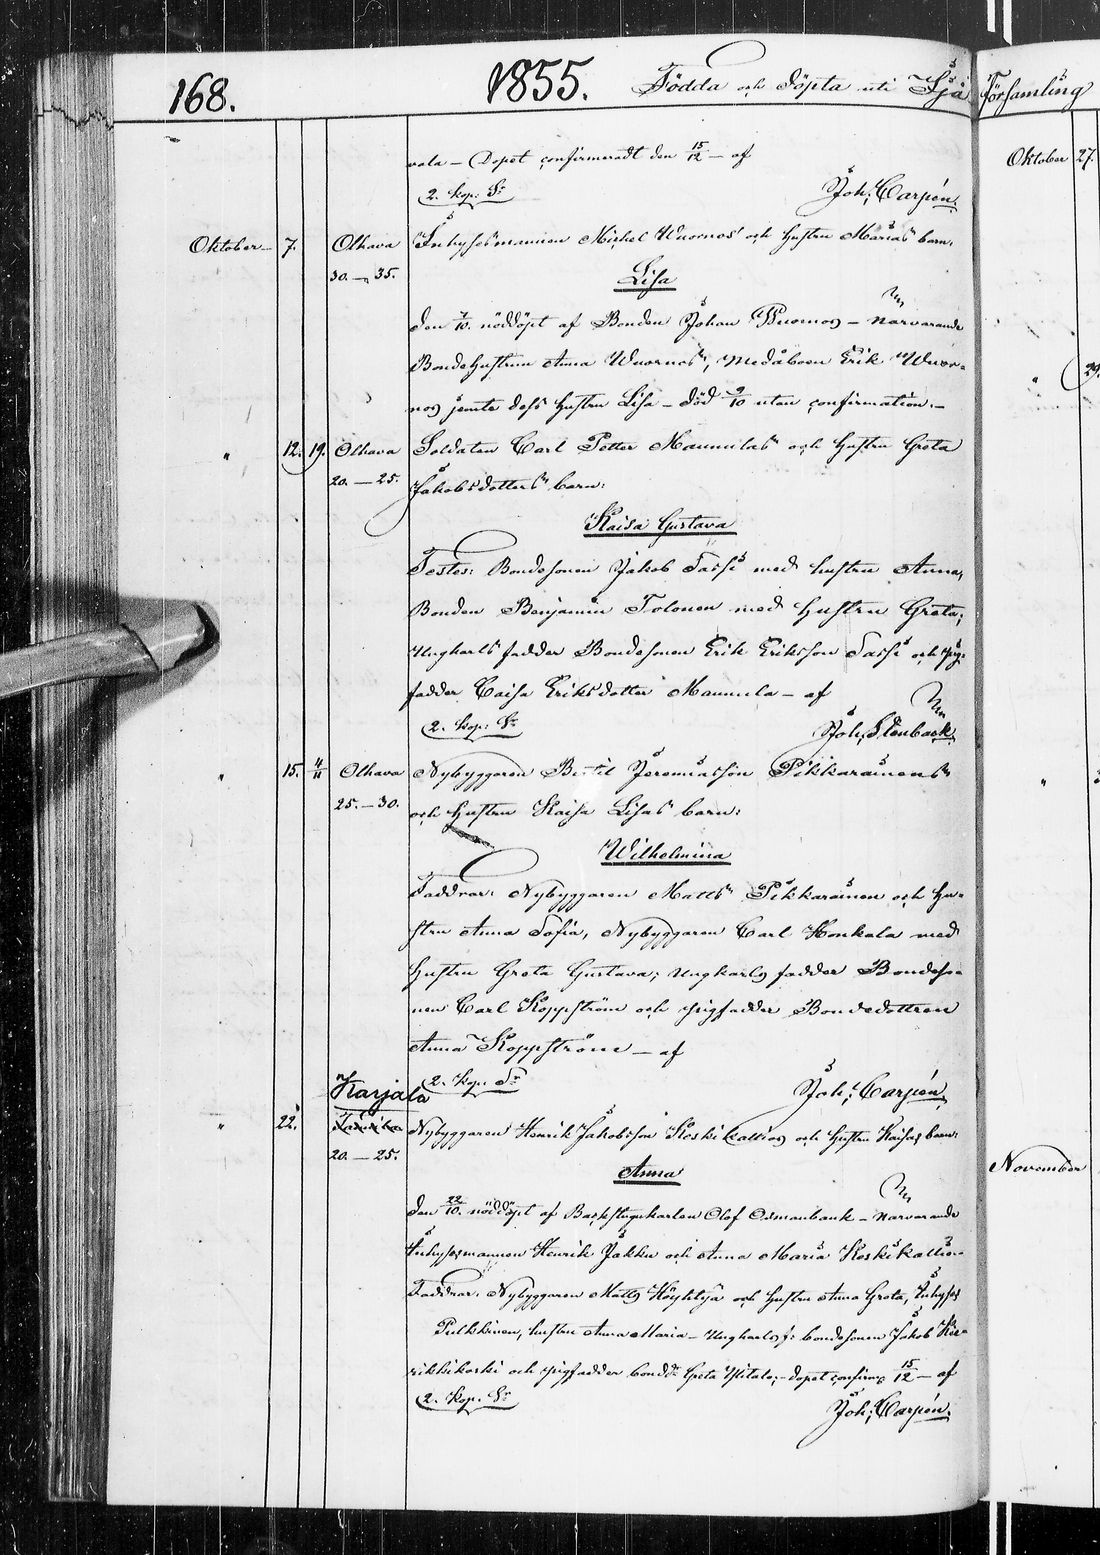 168. 1855. Födda och döpta uti Ijå Församling
vala — Dopet confirmeradt den 15/12 — af
2. kop: Sr Joh: Carpén.
Oktober — 7. Olhava Inhysesmannen Mickel Wuornos' och hustru Marias barn:
30. — 35. Lisa
den 7/10. nöddöpt af Bonden Johan Wuornos — närvarande
Bondehustrun Anna Wuornos, Medåboen Erik Wuor-
nos jemte dess hustru Lisa — död 9/10 utan confirmation. —
" 12. 19. Olhava Soldaten Carl Petter Mannilas och hustru Greta
20. — 25. Jakobsdotters barn:
Kaisa Gustava
Testes: Bondesonen Jakob Tassi med hustru Anna,
Bonden Benjamin Tolonen med hustru Greta;
Ungkarls fadder Bondesonen Erik Eriksson Tassi och pig-
fadder Caisa Eriksdotter Mannila — af
2. kop: Sr Joh: Stenback
" 15. 4/11 Olhava Nybyggaren Bertil Jeremiasson Pikkarainens
25. — 30. och hustru Kaisa Lisas barn:
Wilhelmina
Faddrar: Nybyggaren Matts Pikkarainen och hu-
stru Anna Sofia, Nybyggaren Carl Honkala med
hustru Greta Gustava; Ungkarls fadder Bondeso-
nen Carl Koppström och pigfadder Bondedottren
Anna Koppström — af
2. kop: Sr Joh: Carpén.
Karjala
" 22. Nybyggaren Henrik Jakobsson Koskikallios och hustru Kaisas barn:
20. — 25. Anna
den 22/10. nöddöpt af Backstugukarlen Olof Osmanbank — närvarande
Inhysesmannen Henrik Jakku och Anna Maria Koskikallio —
Faddrar: Nybyggaren Matts Höyhtyä och hustru Anna Greta, Inhyses
Pulkkinen, hustru Anna Maria — Ungkarls f: bondesonen Jakob
och pigfadder bondd: Greta Ylitalo; — dopet confirm: 15/12 — af
2. Kop: Sr Joh: Carpén.
Oktober 27.
" 29.
"
November